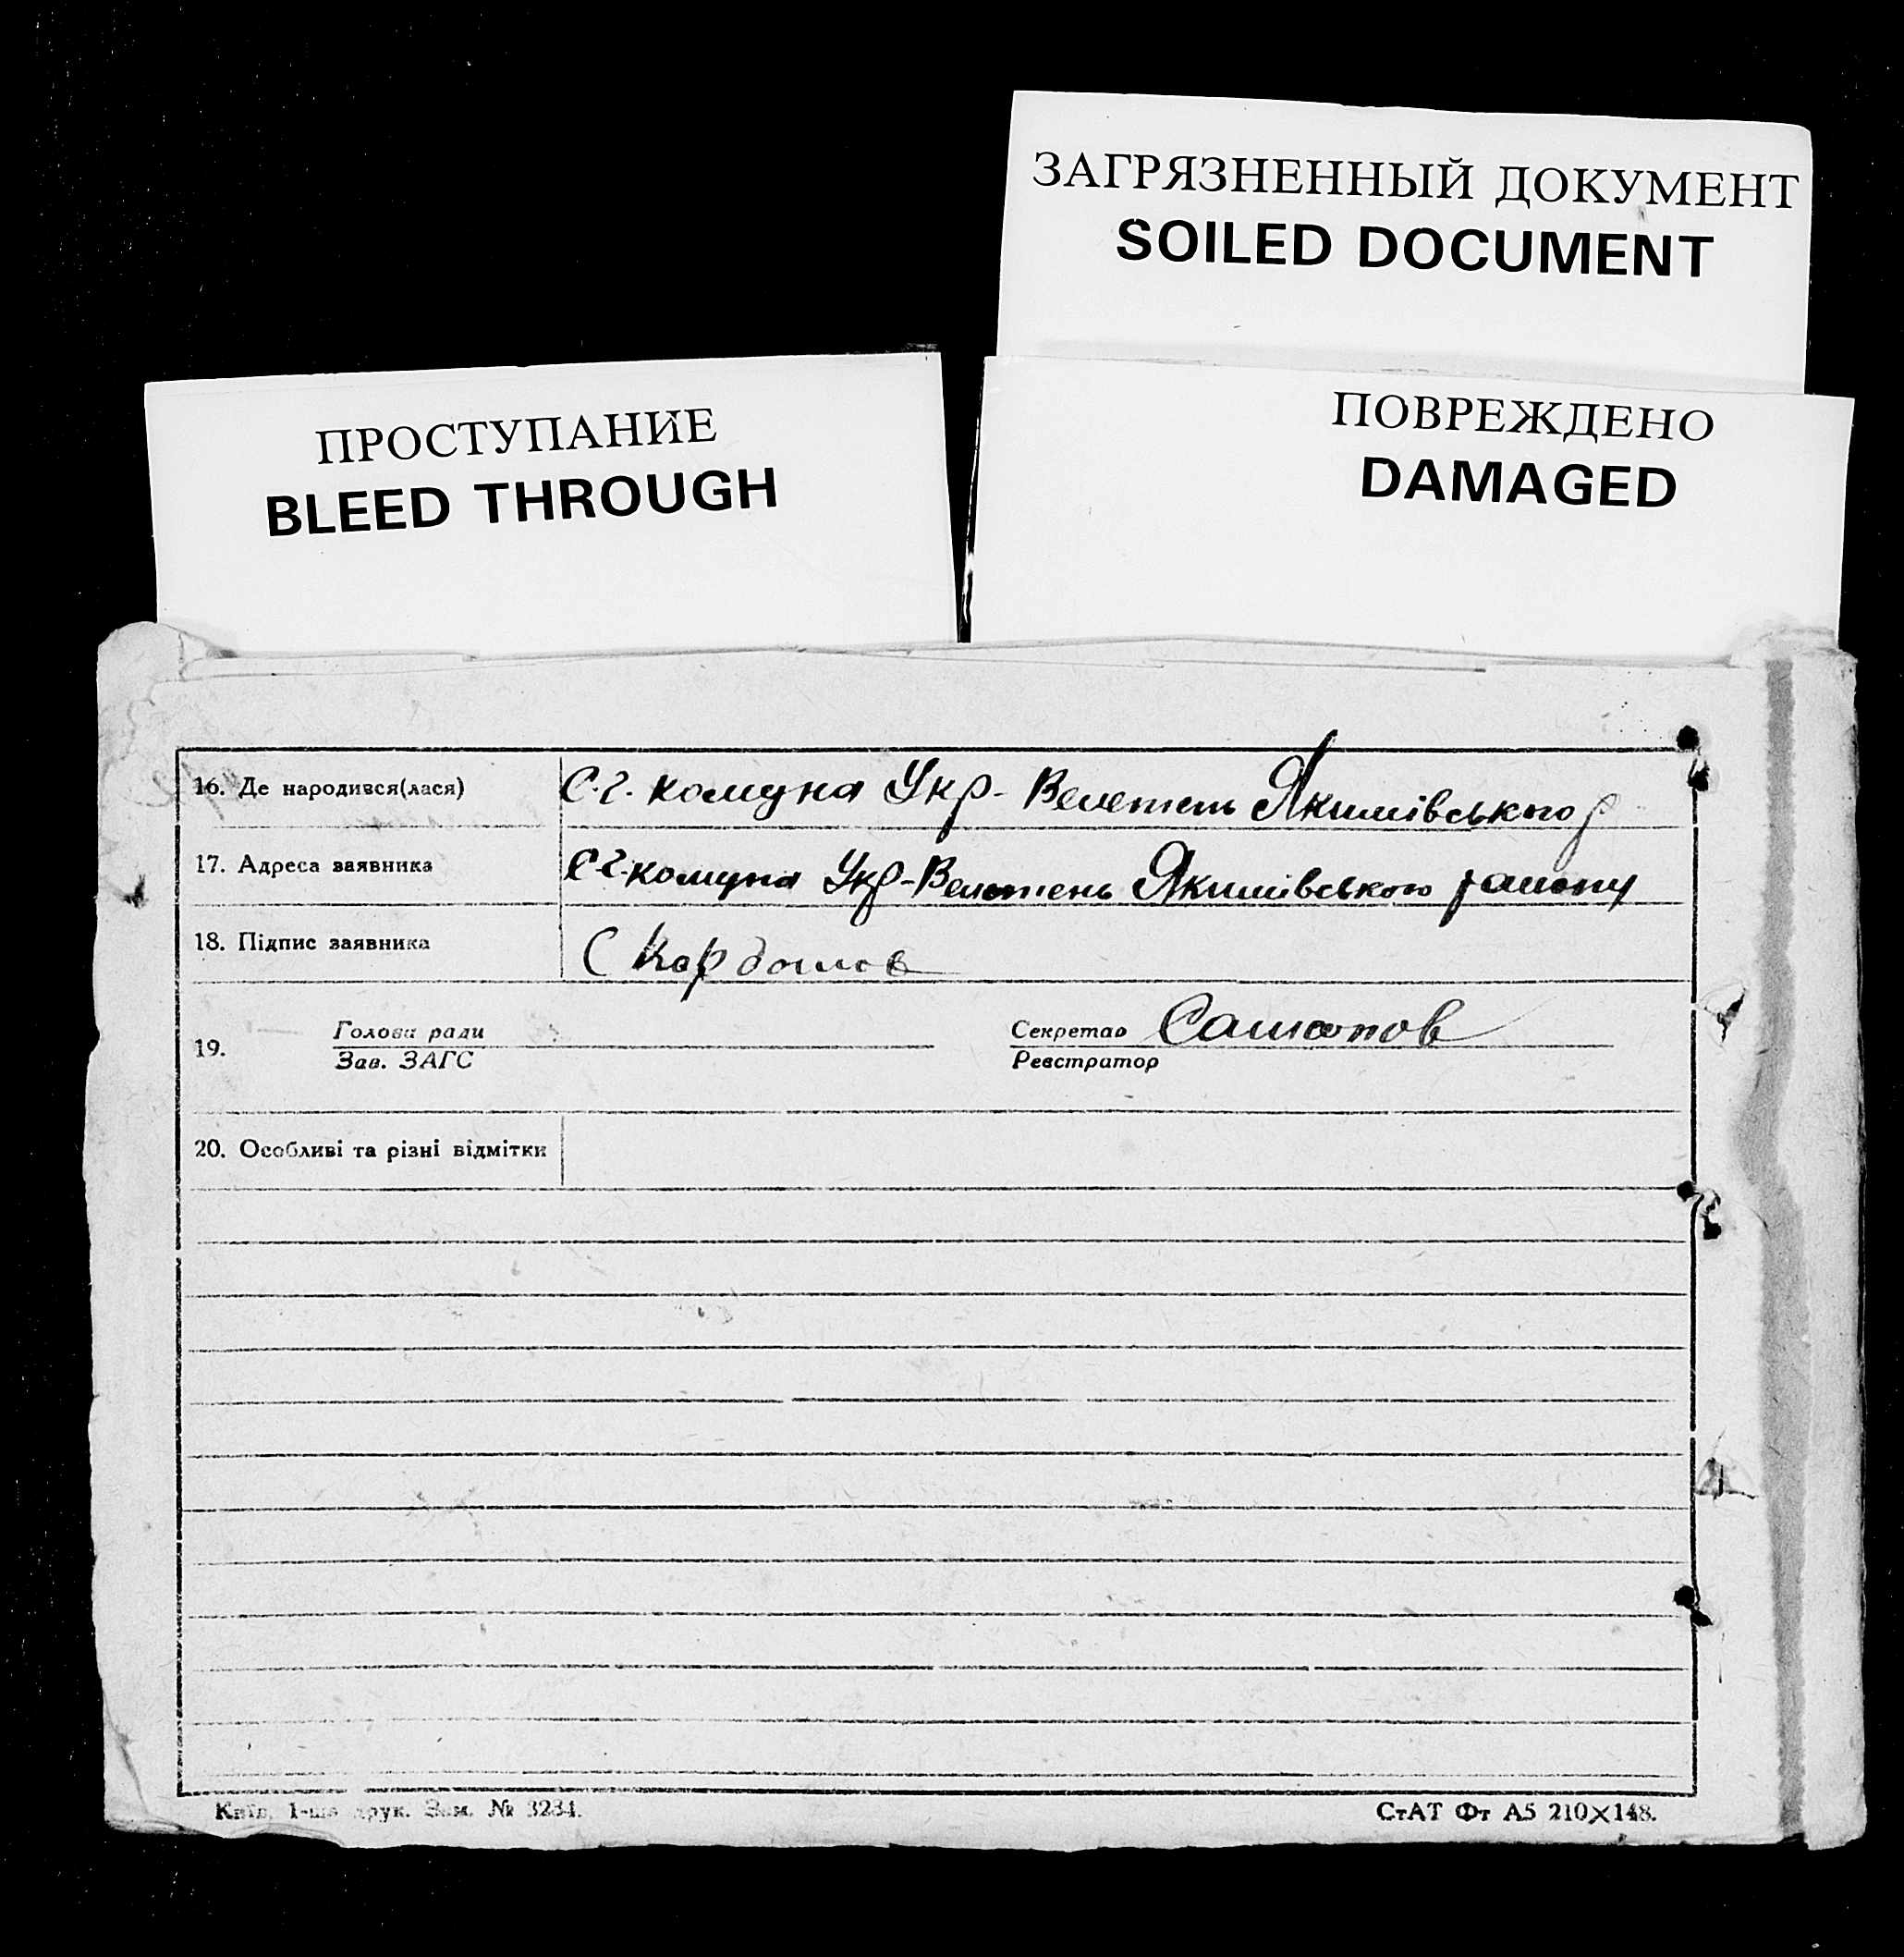 ЗАГРЯЗНЕННЫЙ ДОКУМЕНТ
SOILED DOCUMENT
ПРОСТУПАНИЕ
BLEED THROUGH
ПОВРЕЖДЕНО
DAMAGED
16. Де народився(лася) С.г. комуна Укр-Велетень Якимівського р
17. Адреса заявника С-г. комуна Укр-Велетень Якимівського району
18. Підпис заявника
19. Голова ради Секретар
Зав. ЗАГС Реєстратор
20. Особливі та різні відмітки
Київ, 1-ша друк. Зам. № 3234.
СтАТ Фт А5 210×148.